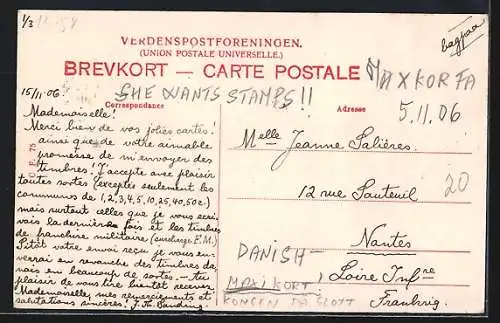 1/3
bagpaa
VERDENSPOSTFORENINGEN.
(UNION POSTALE UNIVERSELLE.)
BREVKORT — CARTE POSTALE
MAXKORTA
15/11·06
SHE WANTS STAMPS!!
5.11.06
Correspondance
Adresse
Mademoiselle!
Merci bien de vos jolies cartes!
ainsi que de votre aimable
promesse de m'envoyer des
timbres. J'accepte avec plaisir
toutes sortes (exceptés seulement les
communs de 1, 2, 3, 4, 5, 10, 25, 40, 50 c.)
mais surtout celles que je vous
la dernière fois et les timbres
de franchise militaire (surcharge F.M.)
Sitôt votre envoi reçu je vous en-
verrai en revanche des timbres da-
nois en beaucoup de sortes. — Au
plaisir de vous lire bientôt recevez
Mademoiselle, mes remerciments et
salutations sincères! J. Th.
Melle Jeanne Salières.
12 rue Sauteuil
20
Nantes
Loire Infre
Frankrig.
DANISH—
MAXI KORT
KONGEN PA SLOTT
75